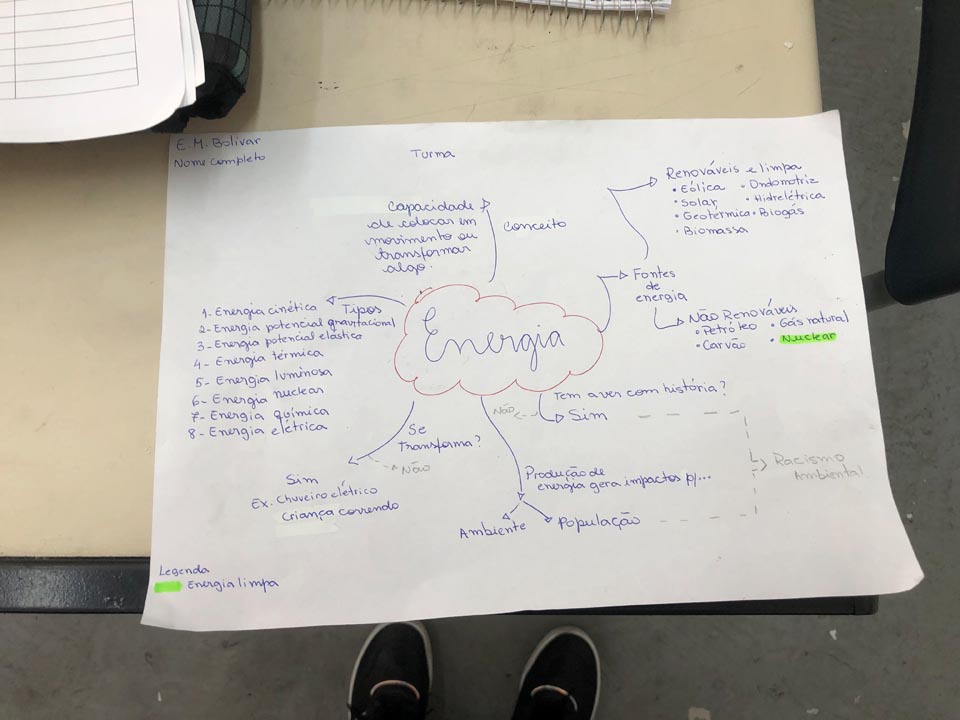 E.M. Bolivar
Nome completo
Turma
Capacidade
de colocar em
movimento ou
transformar
algo.
Conceito
Renováveis e limpa
• Eólica • Ondomotriz
• Solar • Hidrelétrica
• Geotérmica • Biogás
• Biomassa
Fontes
de
energia
Não Renováveis
• Petróleo • Gás natural
• Carvão • Nuclear
Energia
Tipos
1- Energia cinética
2- Energia potencial gravitacional
3- Energia potencial elástica
4- Energia térmica
5- Energia luminosa
6- Energia nuclear
7- Energia química
8- Energia elétrica
Tem a ver com história?
Não
Sim
Se
transforma?
Não
Sim
Ex. Chuveiro elétrico
Criança correndo
Produção de
energia gera impactos p/...
Ambiente
População
Racismo
Ambiental
Legenda
Energia limpa